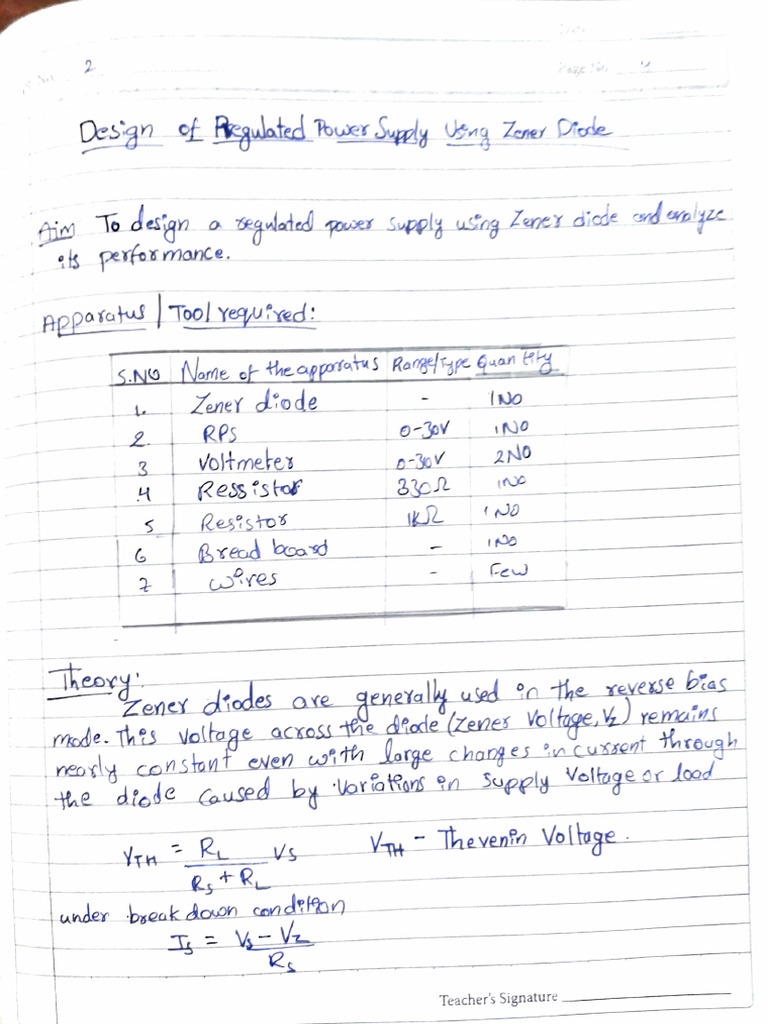 2
Design of Regulated Power Supply Using Zener Diode
Aim To design a regulated power supply using Zener diode and analyze
its performance.
Apparatus | Tool required:
S.NO Name of the apparatus Range/Type Quantity
1. Zener diode - 1NO
2 RPS 0-30V 1NO
3 Voltmeter 0-30V 2NO
4 Ressistor 330Ω 1NO
5 Resistor 1KΩ 1NO
6 Bread board - 1NO
7 wires - Few
Theory:
Zener diodes are generally used in the reverse bias
mode. This voltage across the diode (zener voltage, Vz) remains
nearly constant even with large changes in current through
the diode caused by variations in supply voltage or load
VTH = RL / (RS + RL) VS VTH - Thevenin Voltage.
under break down condition
IS = (VS - VZ) / RS
Teacher's Signature